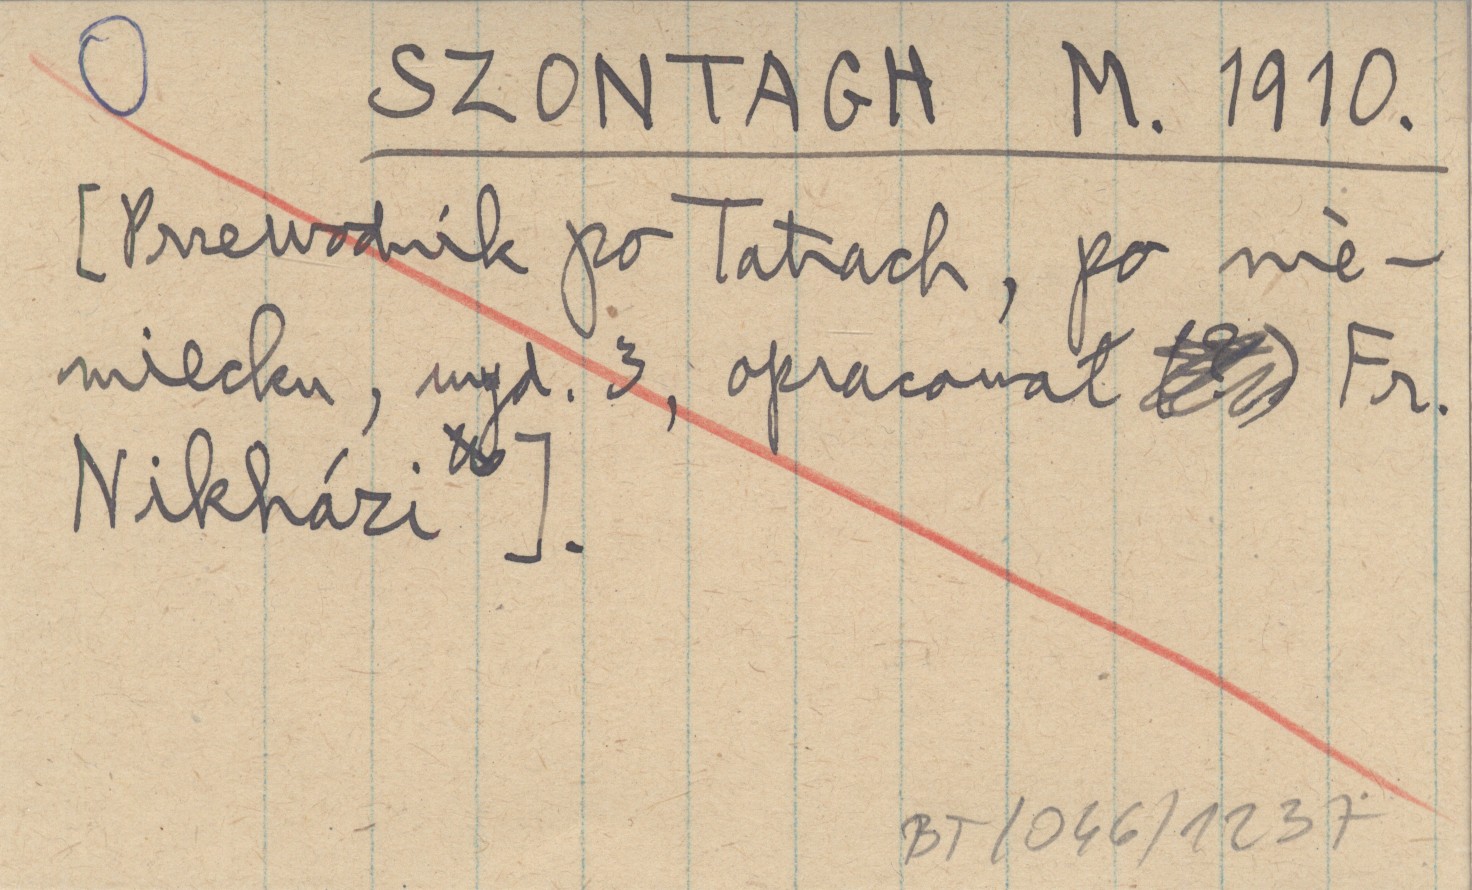 SZONTAGH M. 1910.
[Przewodnik po Tatrach, po nie-
miecku, wyd. 3, opracował Fr.
Nikházi].
BT/046/1237